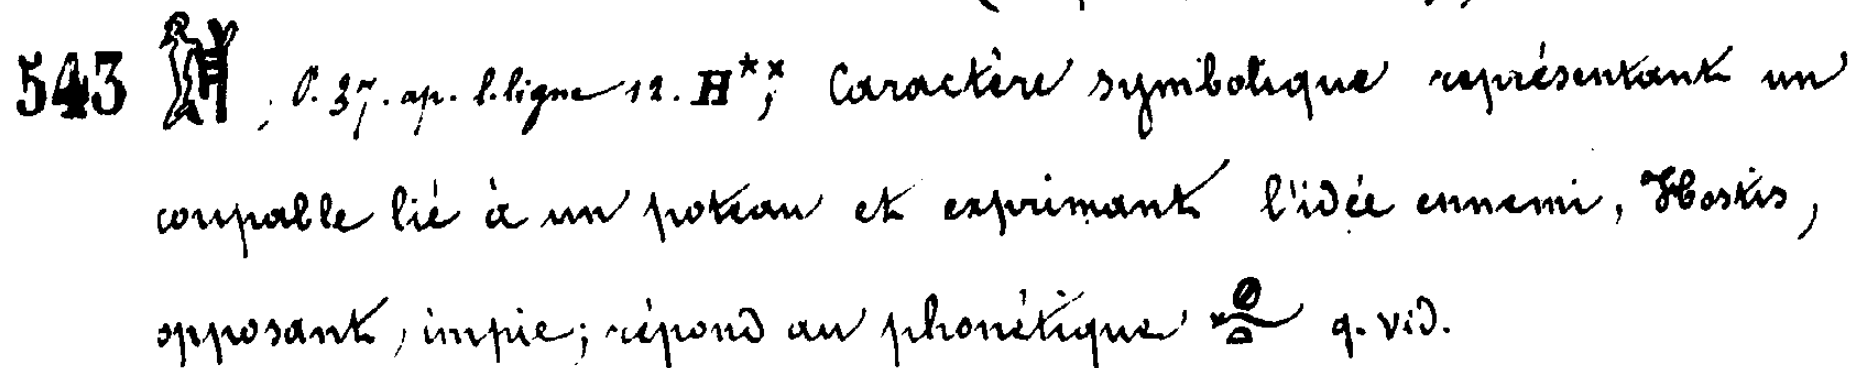 543 , P. 37. ap. l. ligne 12. H**; Caractère symbolique représentant un
coupable lié à un poteau et exprimant l'idée ennemi, Hostis,
opposant, impie; répond au phonétique q. vid.